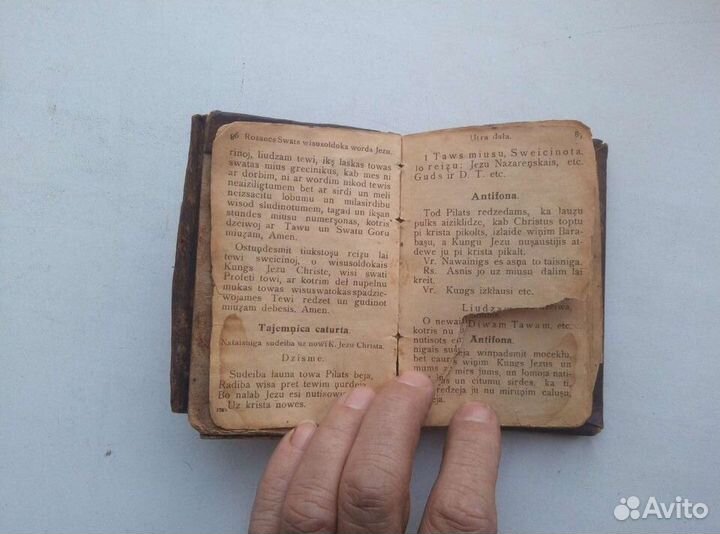 86 Rosancs Swats wisusoldoka worda Jezu.
rinoj, liudzam tewi, ikş laškas towas
swatas mius grecinikus, kab mes ni
ar dorbim, ni ar wordim nikod tewis
neaiziligtumem bet ar sirdi un meli
neizsacitu lobumu un milasirdibu
wisod sludinotumem, tagad un ikşan
stundes miusu numeršonas, kotris
dzeiwoj ar Tawu un Swatu Goru
miuzam, Amen.
Ostuņdesmit tiukstošu reizu lai
tewi sweicinoj, o wisusoldokais
Kungs Jezu Christe, wisi swati
Profeti towi, ar kotrim del nupelnu
mukas towas wisuswatokas spadzie-
wojames Tewi redzet un gudinot
miuzam debesis. Amen.
Tajempica caturta.
Nataisniga sudeiba uz nowi K. Jezu Christa.
Dzísme.
Sudeiba launa towa Pilats beja,
Radiba wisa pret tewim ņurdeja
Bo nalab Jezu esi nutizow
Uz krista nowes.
Utra daļa. 87
1 Taws miusu, Sweicinota,
lo reizu: Jezu Nazareņskais, etc.
Guds ir D. T. etc.
Antifona.
Tod Pilats redzedams, ka lauzu
pulks aiziklidze, kab Christus toptu
pi krista pikolts, izlaide wiņim Bara-
bašu, a Kungu Jezu nušaustijis at-
dewe ju pi krista pikalt.
Vr. Nawainigs es asņa to taisniga.
Rs. Asnis jo uz miusu dalim lai
kreit.
Vr. Kungs izklausi etc.
Liudzam
O newai Diwam Tawam, etc.
kotris nu
nutisots en Antifona.
nigais sui eja winpadsmit moceklu,
bet cauri wiņim Kungs Jezus un
mums z mirs jums, un łomoja nati-
us un citumu sirdes, ka ti,
redzeja ju nu miriņim calušu,
eja.
Avito